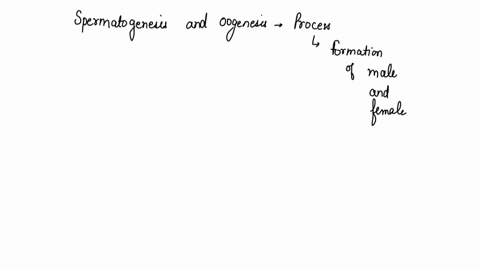 Spermatogenesis and oogenesis → Process
↳ formation
of male
and
female